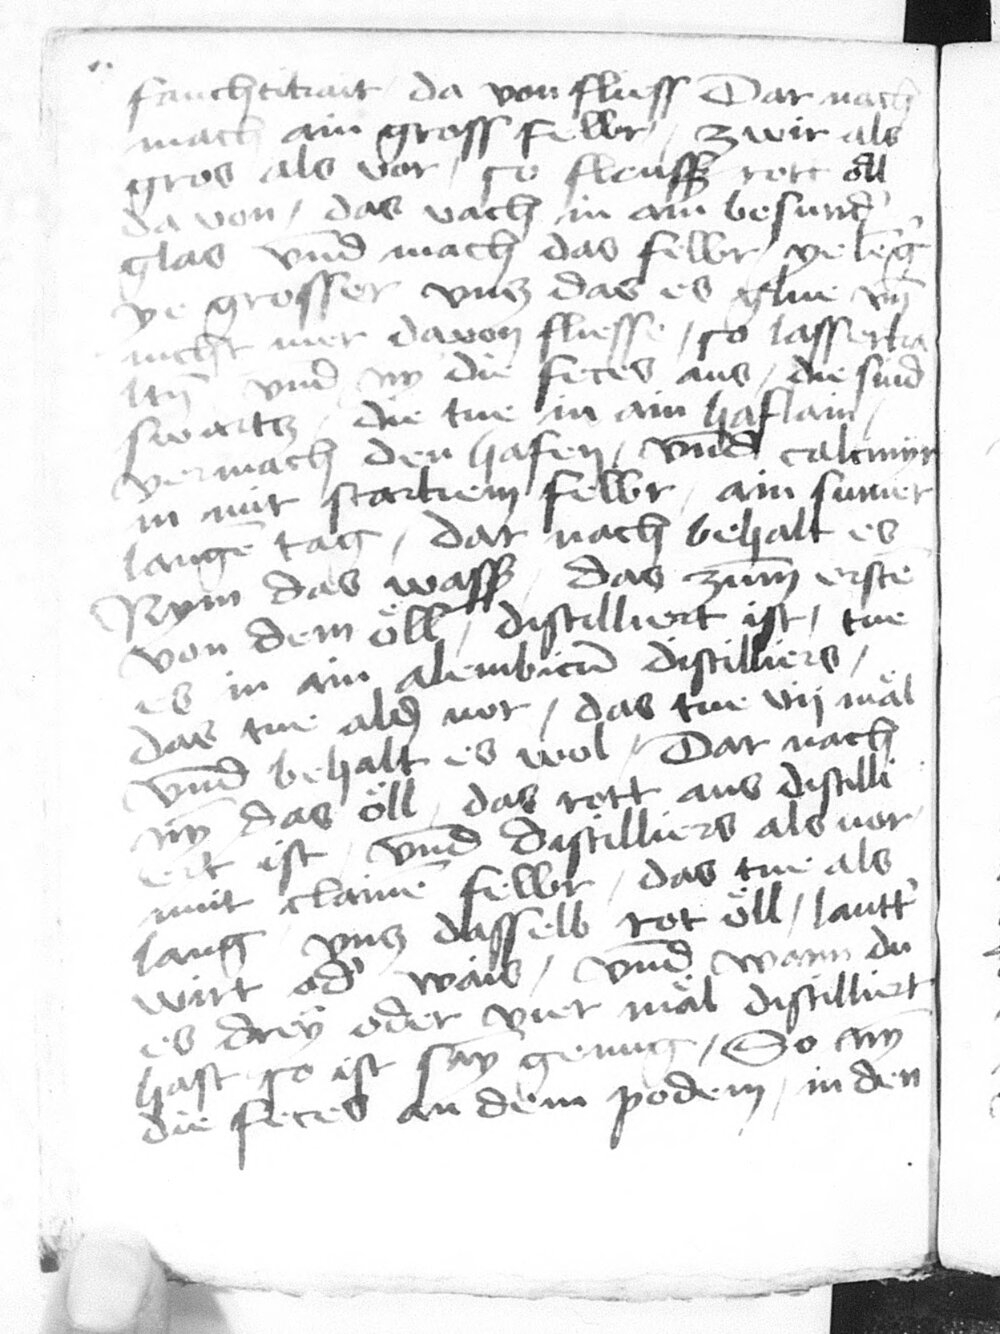 fauchtikait / da von fliess Dar nach
mach ain gross fewr / zwir als
gros als vor / so fleusst rott öll
da von / das vach in ain besund'
glas vnd mach das fewr / ye leng'
ye grosser vntz das es glue vn̄
nicht mer davon fliesse / so lass erka
ltn̄ vnd nÿ die feces aus / die sind
swartz / die tue in ain haflain /
vermach den hafen / vnd calcinyr
in mit starkem fewr / ain sumer
langē tag / dar nach behalt es
Nym das wass' / das zum erstē
von dem öll / distilliert ist / tue
es in ain alembicū distilliers /
das tue als vor / das tue vij mäl
vnd behalt es wol / Dar nach
nÿ das öll / das rott aus distilli
ert ist / vnd distilliers als vor
mit claine fewr / das tue als
lang vntz dasselb rot öll / lautt'
wirt od' wais / vnd wann du
es dreÿ oder vier mäl distilliert
hast so ist sein genug / So nÿ
die feces an dem podem / in den